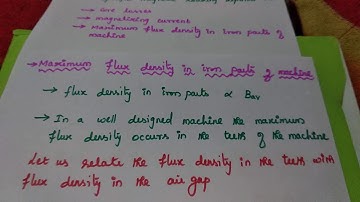 → Core losses
→ magnetizing current
→ Maximum flux density in iron parts of
machine
→ Maximum flux density in iron parts of machine
→ flux density in iron parts α Bav
→ In a well designed machine the maximum
flux density occurs in the teeth of the machine
Let us relate the flux density in the teeth with
flux density in the air gap